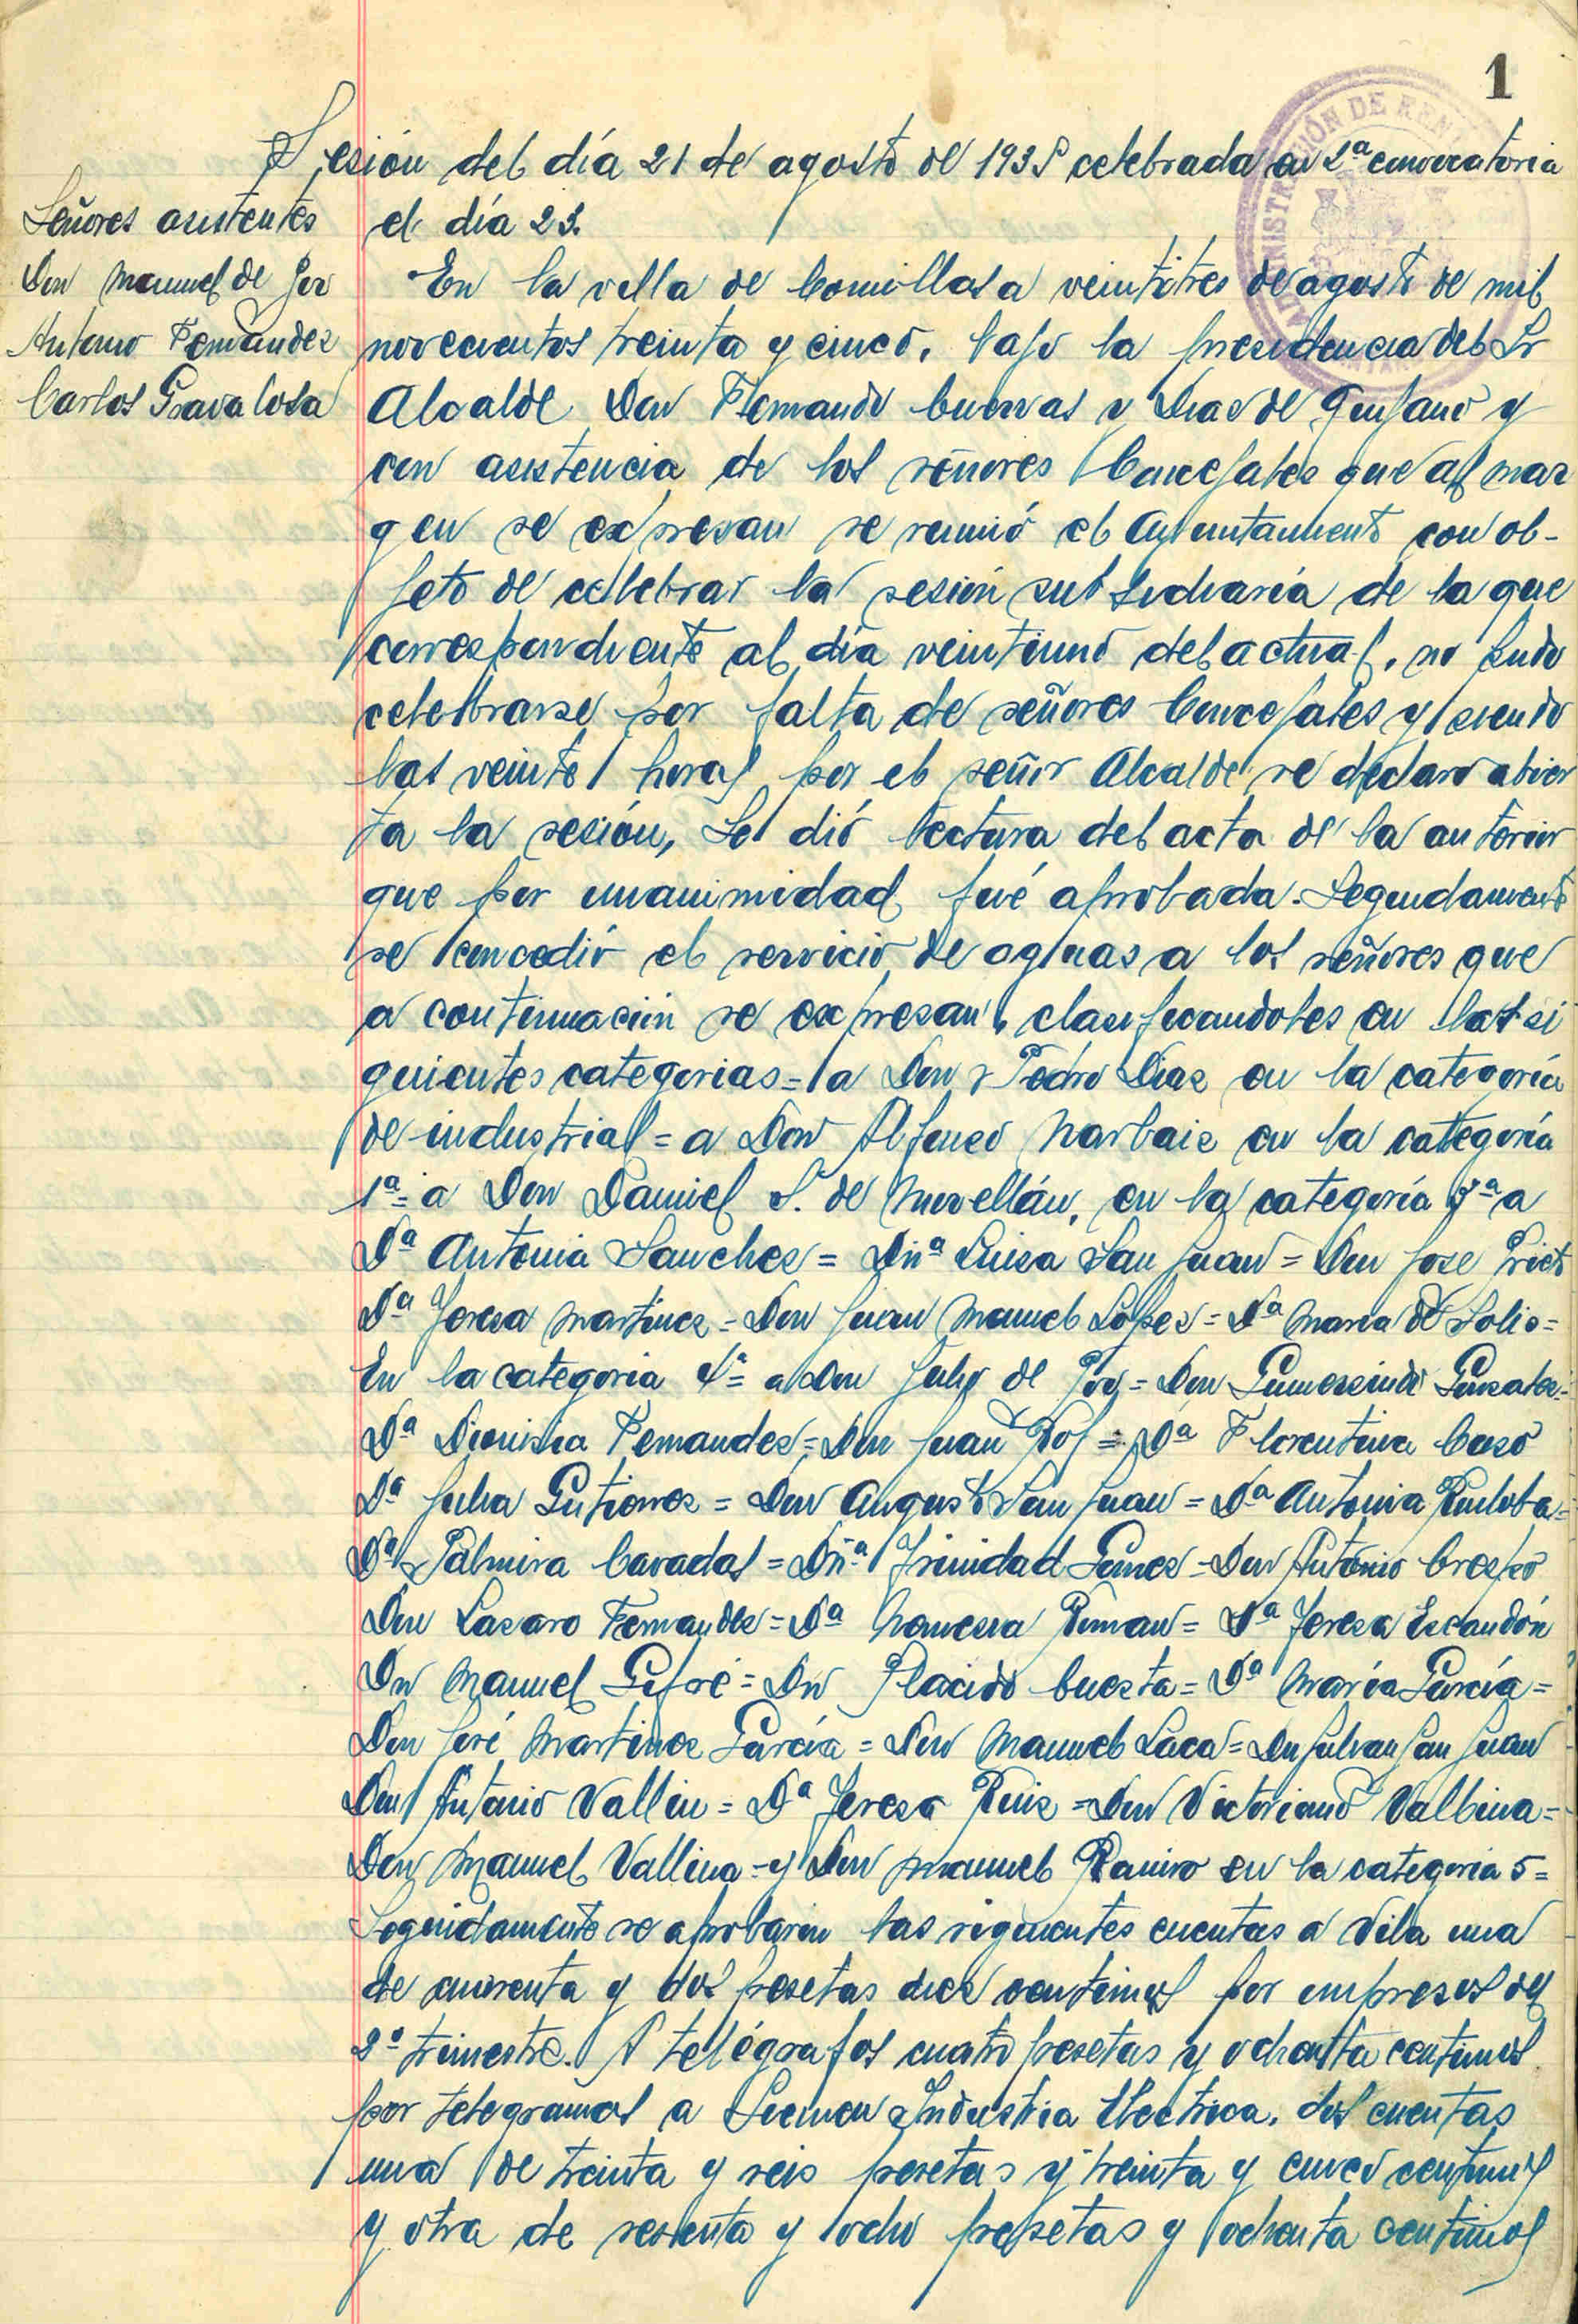 1
ADMINISTRACIÓN DE RENTAS
Sesión del día 21 de agosto de 1935 celebrada en 2ª convocatoria
el día 23.
Señores asistentes
Don Manuel de
Antonio Fernandez
Carlos Gravalosa
En la villa de Comillas a veintitres de agosto de mil
novecientos treinta y cinco, bajo la presidencia del Sr
Alcalde Don Fernando Cuevas y Diaz de Quijano y
con asistencia de los señores Concejales que al mar
gen se expresan se reunió el Ayuntamiento con ob-
jeto de celebrar la sesión subsidiaria de la que
correspondiente al día veintiuno del actual, no pudo
celebrarse por falta de señores Concejales y siendo
las veinte horas por el señor Alcalde se declaro abier
ta la sesión, Se dió lectura del acta de la anterior
que por unanimidad fué aprobada. Seguidamente
se concedió el servicio de aguas a los señores que
a continuación se expresan, clasificandoles en las si
guientes categorias = a Don Pedro Diaz en la categoría
de industrial = a Don Alfonso Narbaiz en la categoría
1ª = a Don Daniel S. de Movellán, en la categoría 3ª a
Dª Antonia Sanchez = Dñª Luisa San Juan = Don Jose Prieto
Dª Teresa Martinez = Don Juan Manuel Lopez = Dª Maria de Solis =
En la categoria 4ª = a Don Julio de Poo = Don Gumersindo Gonzalez =
Dª Dionisia Fernandez = Don Juan = Dª Florentina Caso
Dª Julia Gutierrez = Don Augusto San Juan = Dª Antonia Ruiloba =
Dª Palmira Cavadas = Dñª Trinidad Gomez = Don Antonio Crespo
Don Lazaro Fernandez = Dª = Dª Teresa Escandón
Dn Manuel = Dn Placido Cuesta = Dª María García =
Don José Martinez García = Don Manuel Laca = Dn Julian San Juan
Don Antonio Vallin = Dª Teresa Ruiz = Don Victoriano Vallina =
Don Manuel Vallina = y Don Manuel Ramiro en la categoria 5 =
Seguidamente se aprobaron las siguientes cuentas a Vila una
de cuarenta y dos pesetas diez centimos por impresos del
2º trimestre. A telégrafos cuatro pesetas y ochenta centimos
por telegramas a Industria Electrica, dos cuentas
una de treinta y seis pesetas y treinta y cinco centimos
y otra de sesenta y ocho pesetas y ochenta centimos